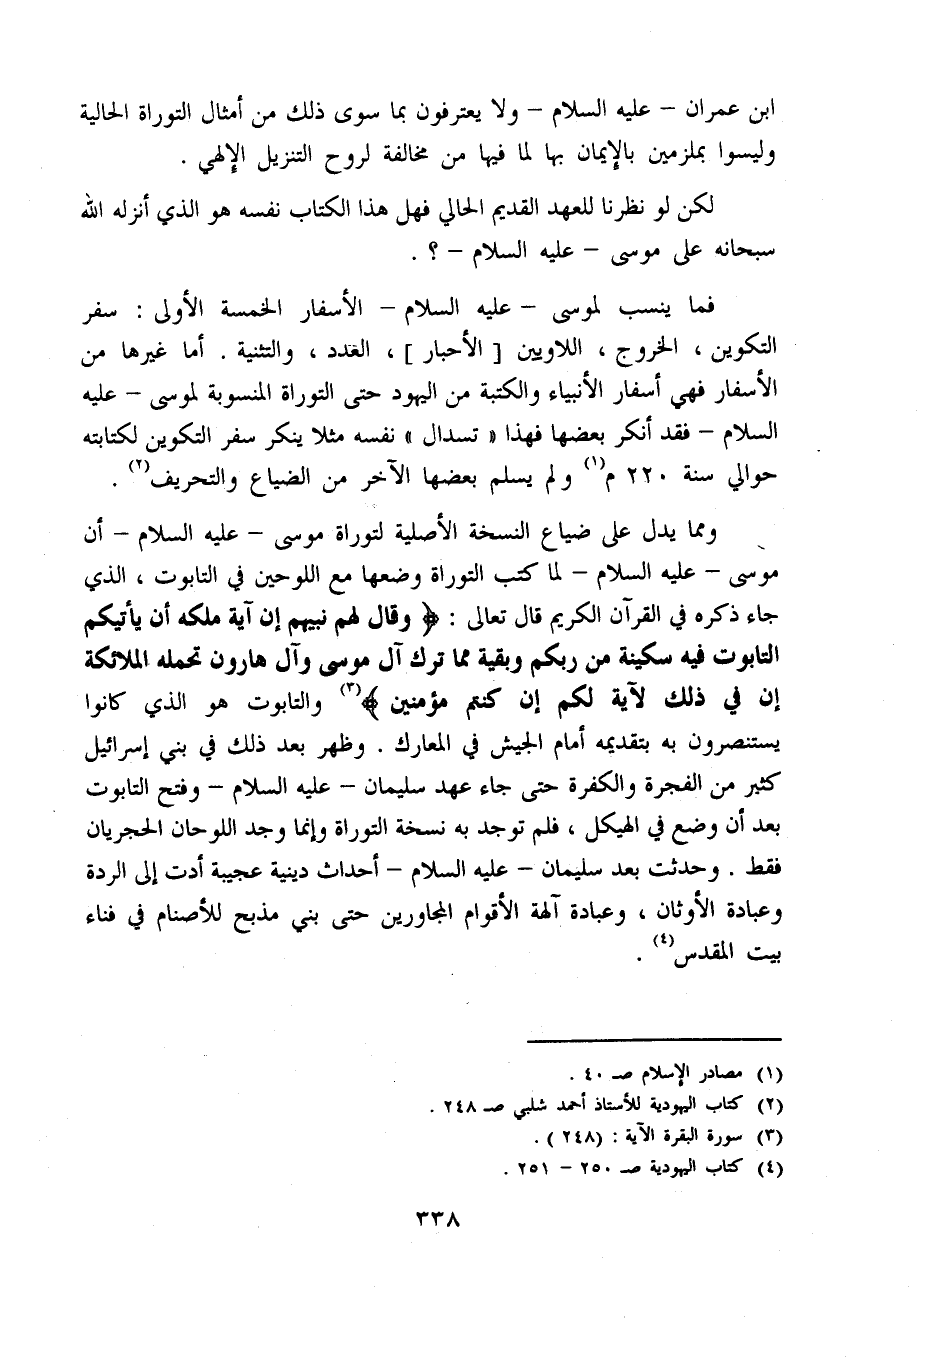 ابن عمران – عليه السلام – ولا يعترفون بما سوى ذلك من أمثال التوراة الحالية
وليسوا بملزمين بالإيمان بها لما فيها من مخالفة لروح التنزيل الإلهي .
لكن لو نظرنا للعهد القديم الحالي فهل هذا الكتاب نفسه هو الذي أنزله الله
سبحانه على موسى – عليه السلام – ؟ .
فما ينسب لموسى – عليه السلام – الأسفار الخمسة الأولى : سفر
التكوين ، الخروج ، اللاويين [ الأحبار ] ، العدد ، والتثنية . أما غيرها من
الأسفار فهي أسفار الأنبياء والكتبة من اليهود حتى التوراة المنسوبة لموسى – عليه
السلام – فقد أنكر بعضها فهذا « تسدال » نفسه مثلا ينكر سفر التكوين لكتابته
حوالي سنة ٢٢٠ م(١) ولم يسلم بعضها الآخر من الضياع والتحريف(٢) .
ومما يدل على ضياع النسخة الأصلية لتوراة موسى – عليه السلام – أن
موسى – عليه السلام – لما كتب التوراة وضعها مع اللوحين في التابوت ، الذي
جاء ذكره في القرآن الكريم قال تعالى : ﴿ وقال لهم نبيهم إن آية ملكه أن يأتيكم
التابوت فيه سكينة من ربكم وبقية مما ترك آل موسى وآل هارون تحمله الملائكة
إن في ذلك لآية لكم إن كنتم مؤمنين ﴾(٣) والتابوت هو الذي كانوا
يستنصرون به بتقديمه أمام الجيش في المعارك . وظهر بعد ذلك في بني إسرائيل
كثير من الفجرة والكفرة حتى جاء عهد سليمان – عليه السلام – وفتح التابوت
بعد أن وضع في الهيكل ، فلم توجد به نسخة التوراة وإنما وجد اللوحان الحجريان
فقط . وحدثت بعد سليمان – عليه السلام – أحداث دينية عجيبة أدت إلى الردة
وعبادة الأوثان ، وعبادة آلهة الأقوام المجاورين حتى بني مذبح للأصنام في فناء
بيت المقدس(٤) .
(١) مصادر الإسلام صـ ٤٠ .
(٢) كتاب اليهودية للأستاذ أحمد شلبي صـ ٢٤٨ .
(٣) سورة البقرة الآية : (٢٤٨ ) .
(٤) كتاب اليهودية صـ ٢٥٠ – ٢٥١ .
٣٣٨